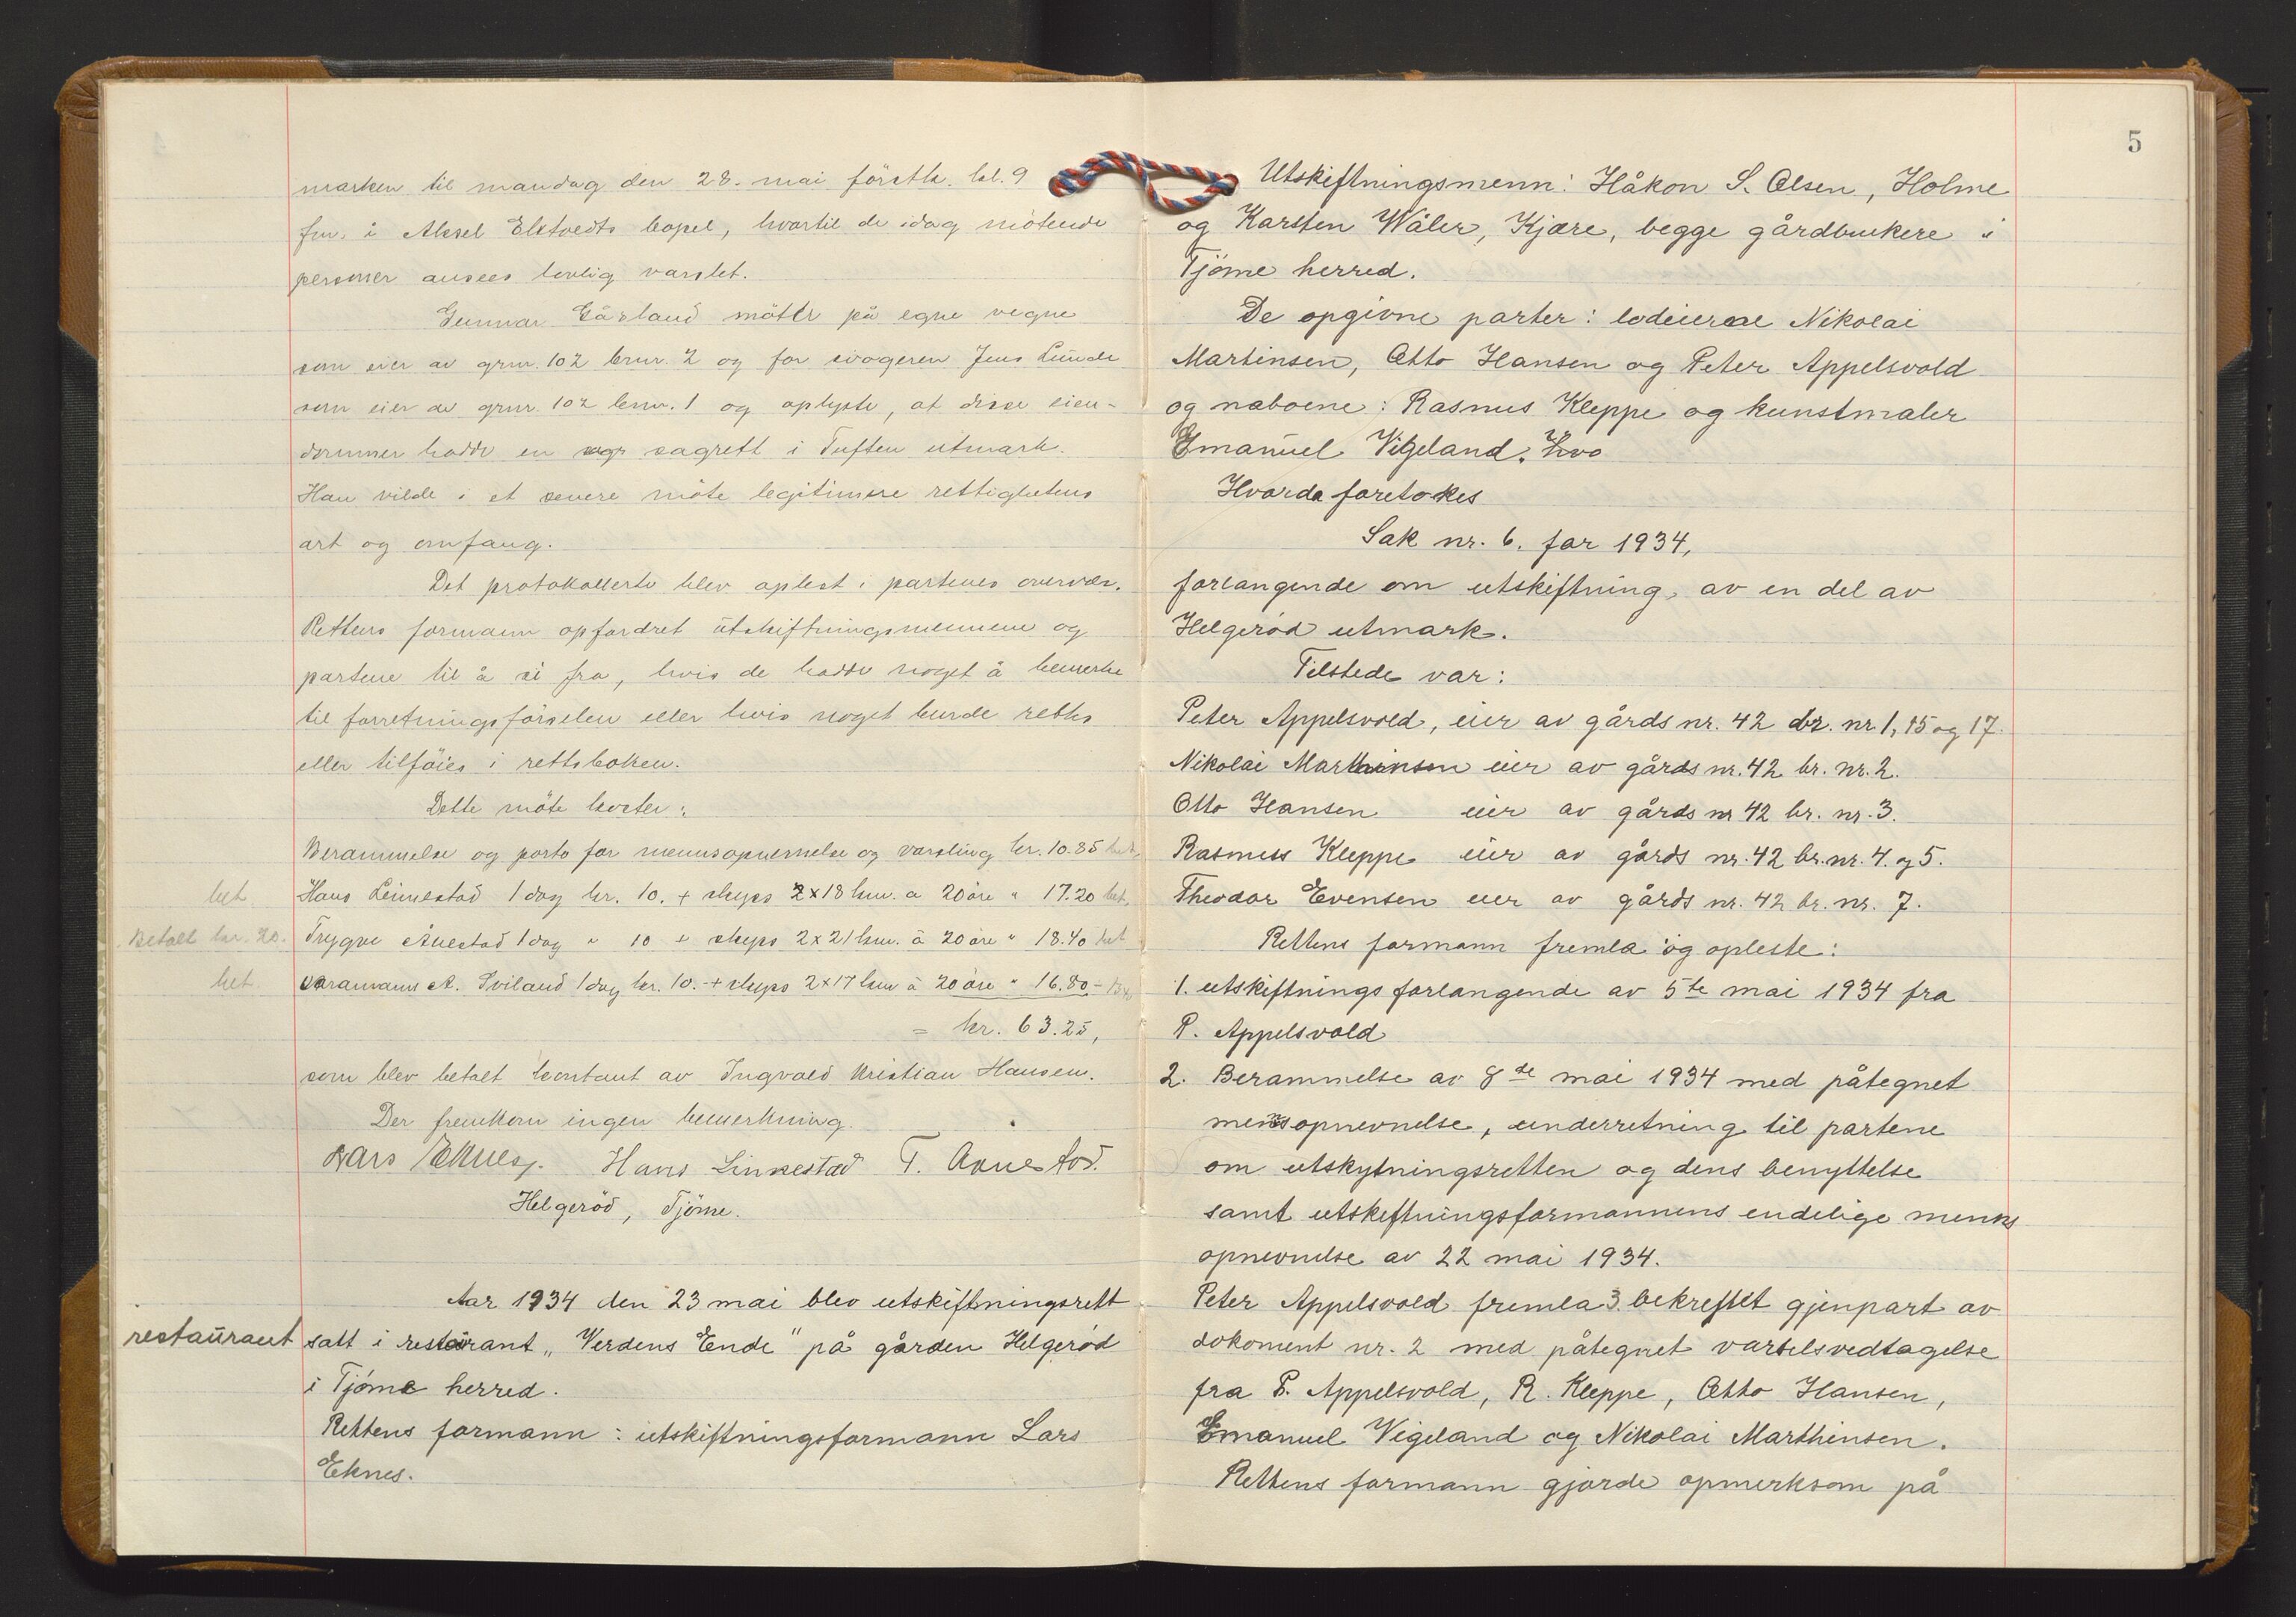 marken til mandag den 28. mai förstk. kl. 9
fm. i Aksel Ektvedts bopel, hvortil de idag møtende
personer ansees lovlig varslet.
Gunnar Gåsland møtte på egne vegne
som eier av grnr. 102 brnr. 2 og for svogeren Jens Lunde
som eier av grnr. 102 brnr. 1 og oplyste, at disse eien-
dommer hadde en sagrett i Tuften utmark.
Han vilde i et senere möte legitimere rettighetens
art og omfang.
Det protokollerte blev oplest i partenes overvær.
Rettens formann opfordret utskiftningsmennene og
partene til å si fra, hvis de hadde noget å bemerke
til forretningsförselen eller hvis noget burde rettes
eller tilföies i rettsboken.
Dette möte koster:
Berammelse og porto for mennsopnevnelse og varsling kr. 10.85 bet.
bet. Hans Linnestad 1 dag kr. 10. + skyss 2×18 km. a 20 öre " 17.20 bet.
Betalt kr. 20. Trygve Anestad 1 dag " 10 + skyss 2×21 km. à 20 öre " 18.40 bet
bet. varamann A. Sviland 1 dag kr. 10. + skyss 2×17 km à 20 öre " 16.80 -
= kr. 63.25,
som blev betalt kontant av Ingvald Kristian Hansen.
Der fremkom ingen bemerkning.
Lars Eknes. Hans Linnestad T. Anestad.
Helgeröd, Tjöme.
Aar 1934 den 23 mai blev utskiftningsrett
restaurant satt i restaurant „Verdens Ende" på gården Helgeröd
i Tjöme herred.
Rettens formann: utskiftningsformann Lars
Eknes.
5
Utskiftningsmenn: Håkon S. Olsen, Holme
og Karsten Wåler, Kjære, begge gårdbrukere i
Tjöme herred.
De opgivne parter: lodeierne Nikolai
Martinsen, Otto Hansen og Peter Appelsvold
og naboene: Rasmus Kleppe og kunstmaler
Emanuel Vigeland. Hvo
Hvorda foretokes
Sak nr. 6. for 1934,
forlangende om utskiftning, av en del av
Helgeröd utmark.
Tilstede var:
Peter Appelsvold, eier av gårds nr. 42 br. nr. 1, 15 og 17.
Nikolai Marthinsen eier av gårds nr. 42 br. nr. 2.
Otto Hansen eier av gårds nr 42 br. nr. 3.
Rasmus Kleppe eier av gårds nr. 42 br. nr. 4. og 5.
Theodor Evensen eier av gårds nr. 42 br. nr. 7.
Rettens formann fremla og opleste:
1. utskiftnings forlangende av 5te mai 1934 fra
P. Appelsvold
2. Berammelse av 8de mai 1934 med påtegnet
mensopnevnelse, underretning til partene
om utskytningsretten og dens benyttelse
samt utskeftningsformannens endelige menns
opnevnelse av 22 mai 1934.
Peter Appelsvold fremla 3. bekreftet gjenpart av
dokoment nr. 2 med påtegnet varselsvedtagelse
fra P. Appelsvold, R. Kleppe, Otto Hansen,
Emanuel Vigeland og Nikolai Marthinsen.
Rettens formann gjorde opmerksom på